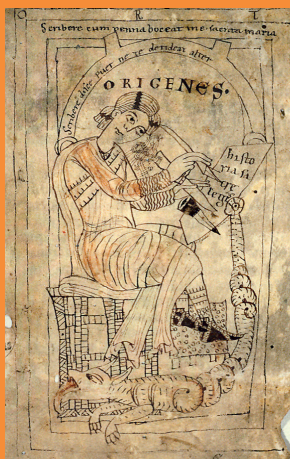 O R T
Scribere cum penna doceat me sacrata maria
Scribere disce puer ne te derideat alter
ORIGENES·
histo
ria si
ge
lege